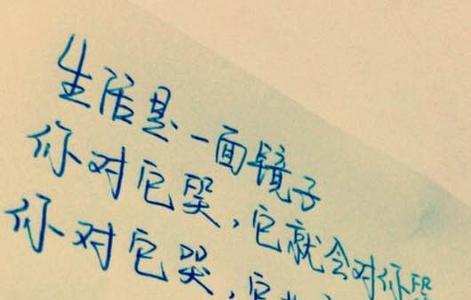 生活是一面镜子
你对它哭，它就会对你
你对它哭，它